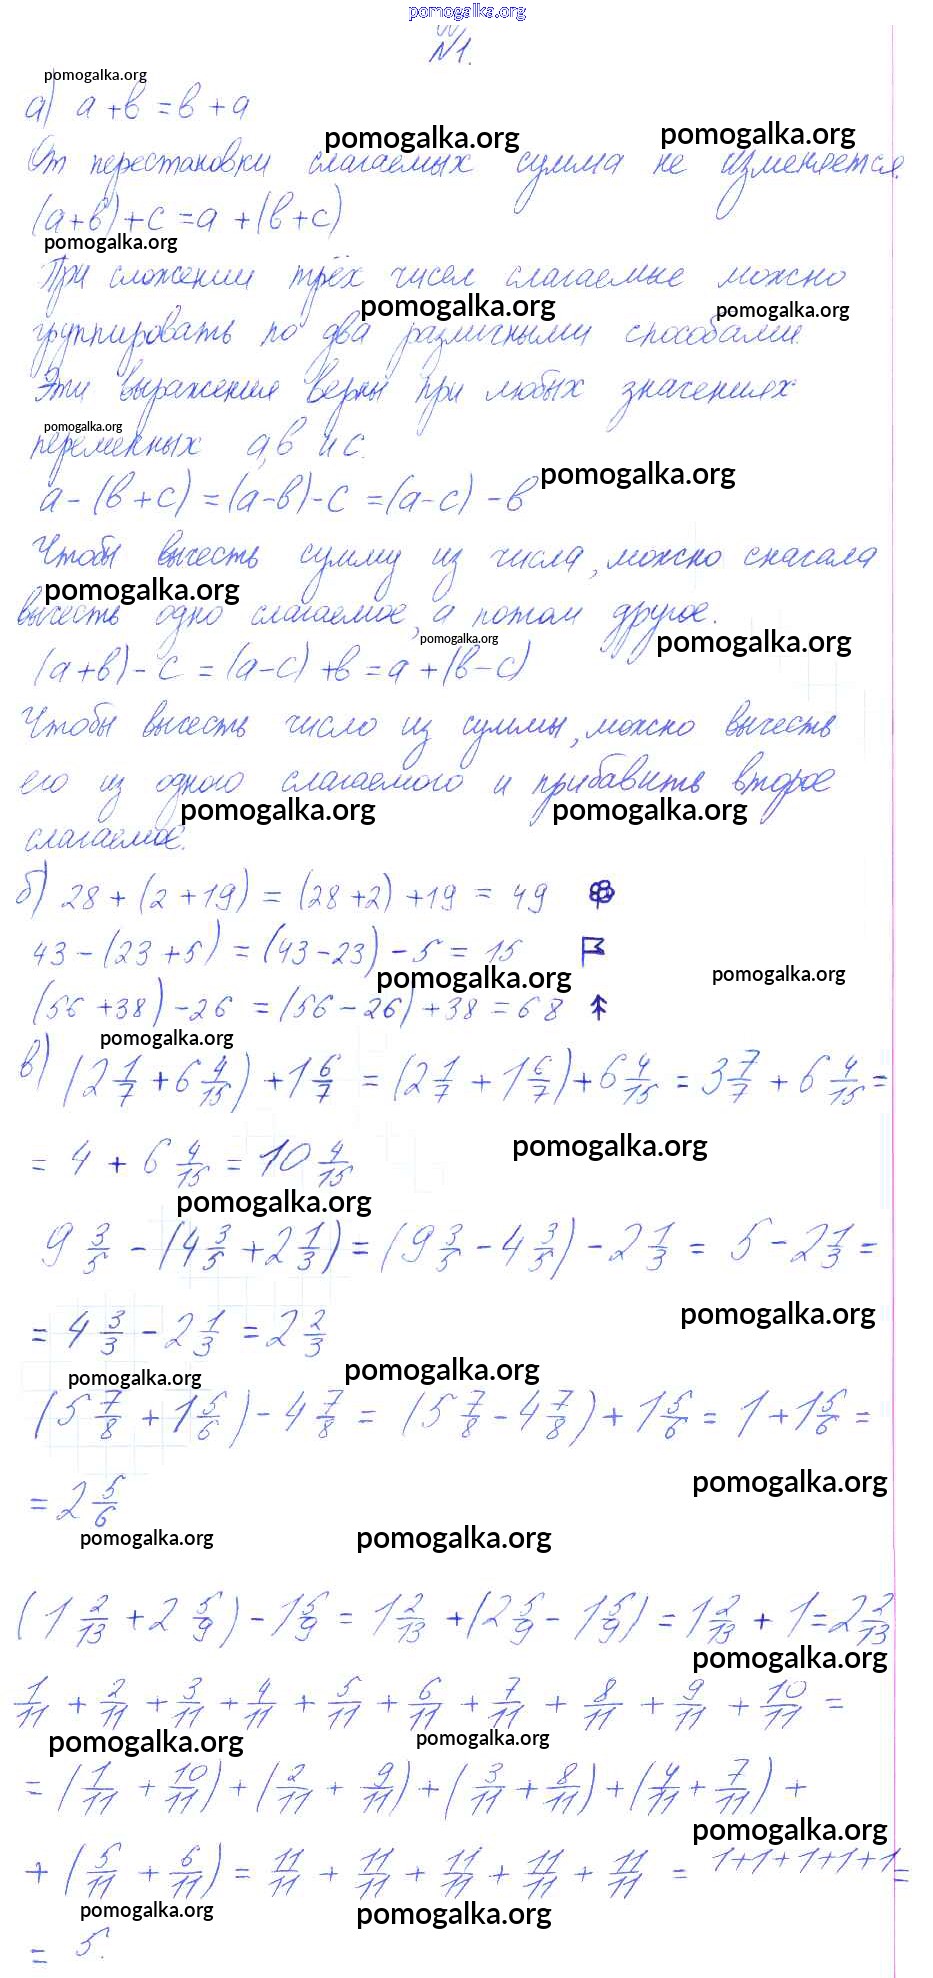 pomogalka.org
№1.
pomogalka.org
а) a + в = в + a
pomogalka.org pomogalka.org
От перестановки слагаемых сумма не изменяется.
(a + в) + c = a + (в + c)
pomogalka.org
При сложении трёх чисел слагаемые можно
pomogalka.org pomogalka.org
группировать по два различными способами.
Эти выражения верны при любых значениях
pomogalka.org
переменных a, в и c.
pomogalka.org
a - (в + c) = (a - в) - c = (a - c) - в
Чтобы вычесть сумму из числа, можно сначала
pomogalka.org
вычесть одно слагаемое, а потом другое.
pomogalka.org pomogalka.org
(a + в) - c = (a - c) + в = a + (в - c)
Чтобы вычесть число из суммы, можно вычесть
его из одного слагаемого и прибавить второе
pomogalka.org pomogalka.org
слагаемое.
б) 28 + (2 + 19) = (28 + 2) + 19 = 49
43 - (23 + 5) = (43 - 23) - 5 = 15
pomogalka.org pomogalka.org
(56 + 38) - 26 = (56 - 26) + 38 = 68
pomogalka.org
в) (2 1/7 + 6 4/15) + 1 6/7 = (2 1/7 + 1 6/7) + 6 4/15 = 3 7/7 + 6 4/15 =
pomogalka.org
= 4 + 6 4/15 = 10 4/15
pomogalka.org
9 3/5 - (4 3/5 + 2 1/3) = (9 3/5 - 4 3/5) - 2 1/3 = 5 - 2 1/3 =
pomogalka.org
= 4 3/3 - 2 1/3 = 2 2/3
pomogalka.org pomogalka.org
(5 7/8 + 1 5/6) - 4 7/8 = (5 7/8 - 4 7/8) + 1 5/6 = 1 + 1 5/6 =
pomogalka.org
= 2 5/6
pomogalka.org pomogalka.org
(1 2/13 + 2 5/9) - 1 5/9 = 1 2/13 + (2 5/9 - 1 5/9) = 1 2/13 + 1 = 2 2/13
pomogalka.org
1/11 + 2/11 + 3/11 + 4/11 + 5/11 + 6/11 + 7/11 + 8/11 + 9/11 + 10/11 =
pomogalka.org pomogalka.org
= (1/11 + 10/11) + (2/11 + 9/11) + (3/11 + 8/11) + (4/11 + 7/11) +
pomogalka.org
+ (5/11 + 6/11) = 11/11 + 11/11 + 11/11 + 11/11 + 11/11 = 1+1+1+1+1 =
pomogalka.org pomogalka.org
= 5.